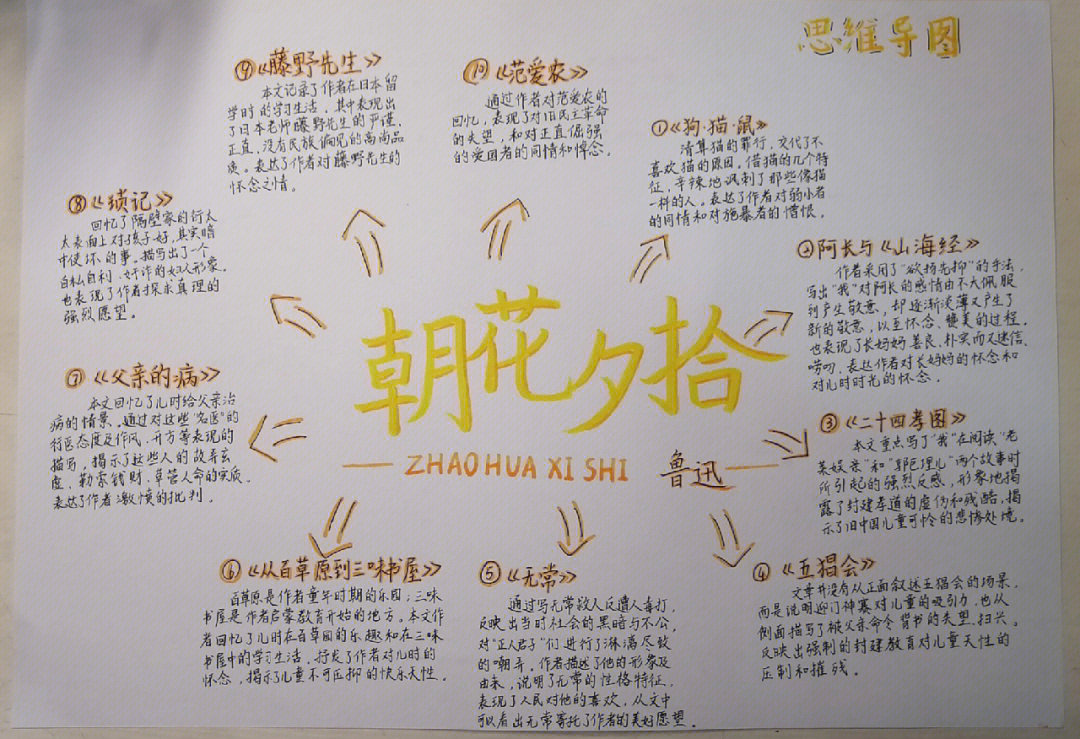 思维导图
朝花夕拾
ZHAO HUA XI SHI
鲁迅
①《狗·猫·鼠》
清算猫的罪行,交代了不
喜欢猫的原因。借猫的几个特
征,辛辣地讽刺了那些像猫
一样的人,表达了作者对弱小者
的同情和对施暴者的憎恨。
②阿长与《山海经》
作者采用了“欲扬先抑”的手法,
写出“我”对阿长的感情由不大佩服
到产生敬意,却逐渐淡薄又产生了
新的敬意,以至怀念、赞美的过程,
也表现了长妈妈善良、朴实而又迷信、
唠叨,表达作者对长妈妈的怀念和
对儿时时光的怀念.
③《二十四孝图》
本文重点写了“我”在阅读“老
莱娱亲”和“郭巨埋儿”两个故事时
所引起的强烈反感,形象地揭
露了封建孝道的虚伪和残酷,揭
示了旧中国儿童可怜的悲惨处境。
④《五猖会》
文章并没有从正面叙述五猖会的场景,
而是说明迎门神赛对儿童的吸引力,也从
侧面描写了被父亲命令背书的失望、扫兴。
反映出强制的封建教育对儿童天性的
压制和摧残。
⑤《无常》
通过写无常救人反遭人毒打,
反映出当时社会的黑暗与不公,
对“正人君子”们进行了淋漓尽致
的嘲弄。作者描述了他的形象及
由来,说明了无常的性格特征,
表现了人民对他的喜欢,从文中
可以看出无常寄托了作者的美好愿望。
⑥《从百草原到三味书屋》
百草原是作者童年时期的乐园;三味
书屋是作者启蒙教育开始的地方。本文作
者回忆了儿时在百草园的乐趣和在三味
书屋中的学习生活,抒发了作者对儿时的
怀念,揭示了儿童不可压抑的快乐天性。
⑦《父亲的病》
本文回忆了儿时给父亲治
病的情景,通过对这些“名医”的
行医态度及作风、开方等表现的
描写,揭示了这些人的故弄玄
虚、勒索钱财、草菅人命的实质,
表达了作者激愤的批判。
⑧《琐记》
回忆了隔壁家的衍太
太表面上对孩子好,其实暗
中使坏的事。描写出了一个
自私自利、奸诈的妇人形象。
也表现了作者探求真理的
强烈愿望。
⑨《藤野先生》
本文记录了作者在日本留
学时的学习生活,其中表现出
了日本老师藤野先生的严谨、
正直、没有民族偏见的高尚品
质。表达了作者对藤野先生的
怀念之情。
⑩《范爱农》
通过作者对范爱农的
回忆,表现了对旧民主革命
的失望,和对正直倔强
的爱国者的同情和悼念.